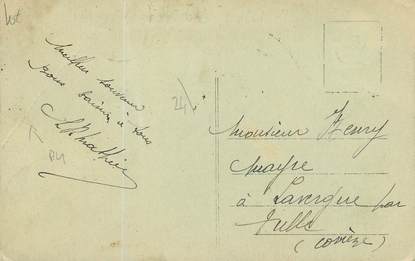 Meilleur souvenir
bons baisers à tous
Mathieu
24
Monsieur Henry
Mayre
à Lavergne par
Tulle
(Corrèze)